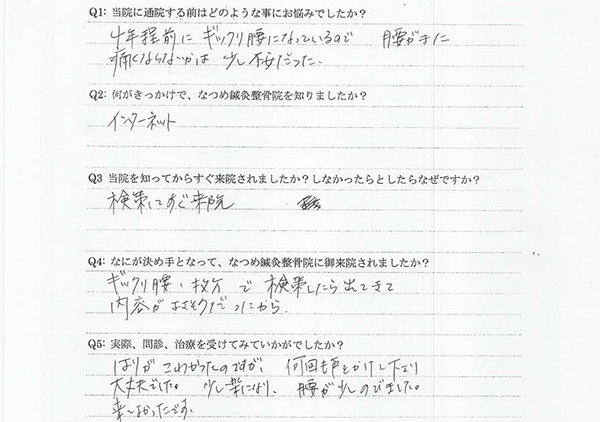 Q1: 当院に通院する前はどのような事にお悩みでしたか?
4年程前に ギックリ腰になっているので 腰がまた
痛くならないかは 少し不安だった.
Q2: 何がきっかけで、なつめ鍼灸整骨院を知りましたか?
インターネット
Q3 当院を知ってからすぐ来院されましたか?しなかったらとしたらなぜですか?
検索してすぐ来院
Q4: なにが決め手となって、なつめ鍼灸整骨院に御来院されましたか?
ギックリ腰、枚方 で 検索したら出てきて
内容がよさそうだったから.
Q5: 実際、問診、治療を受けてみていかがでしたか?
はりが こわかったのですが、 何回も声をかけて下さり
大丈夫でした。 少し楽になり、 腰が少しのびました。
来てよかったです。